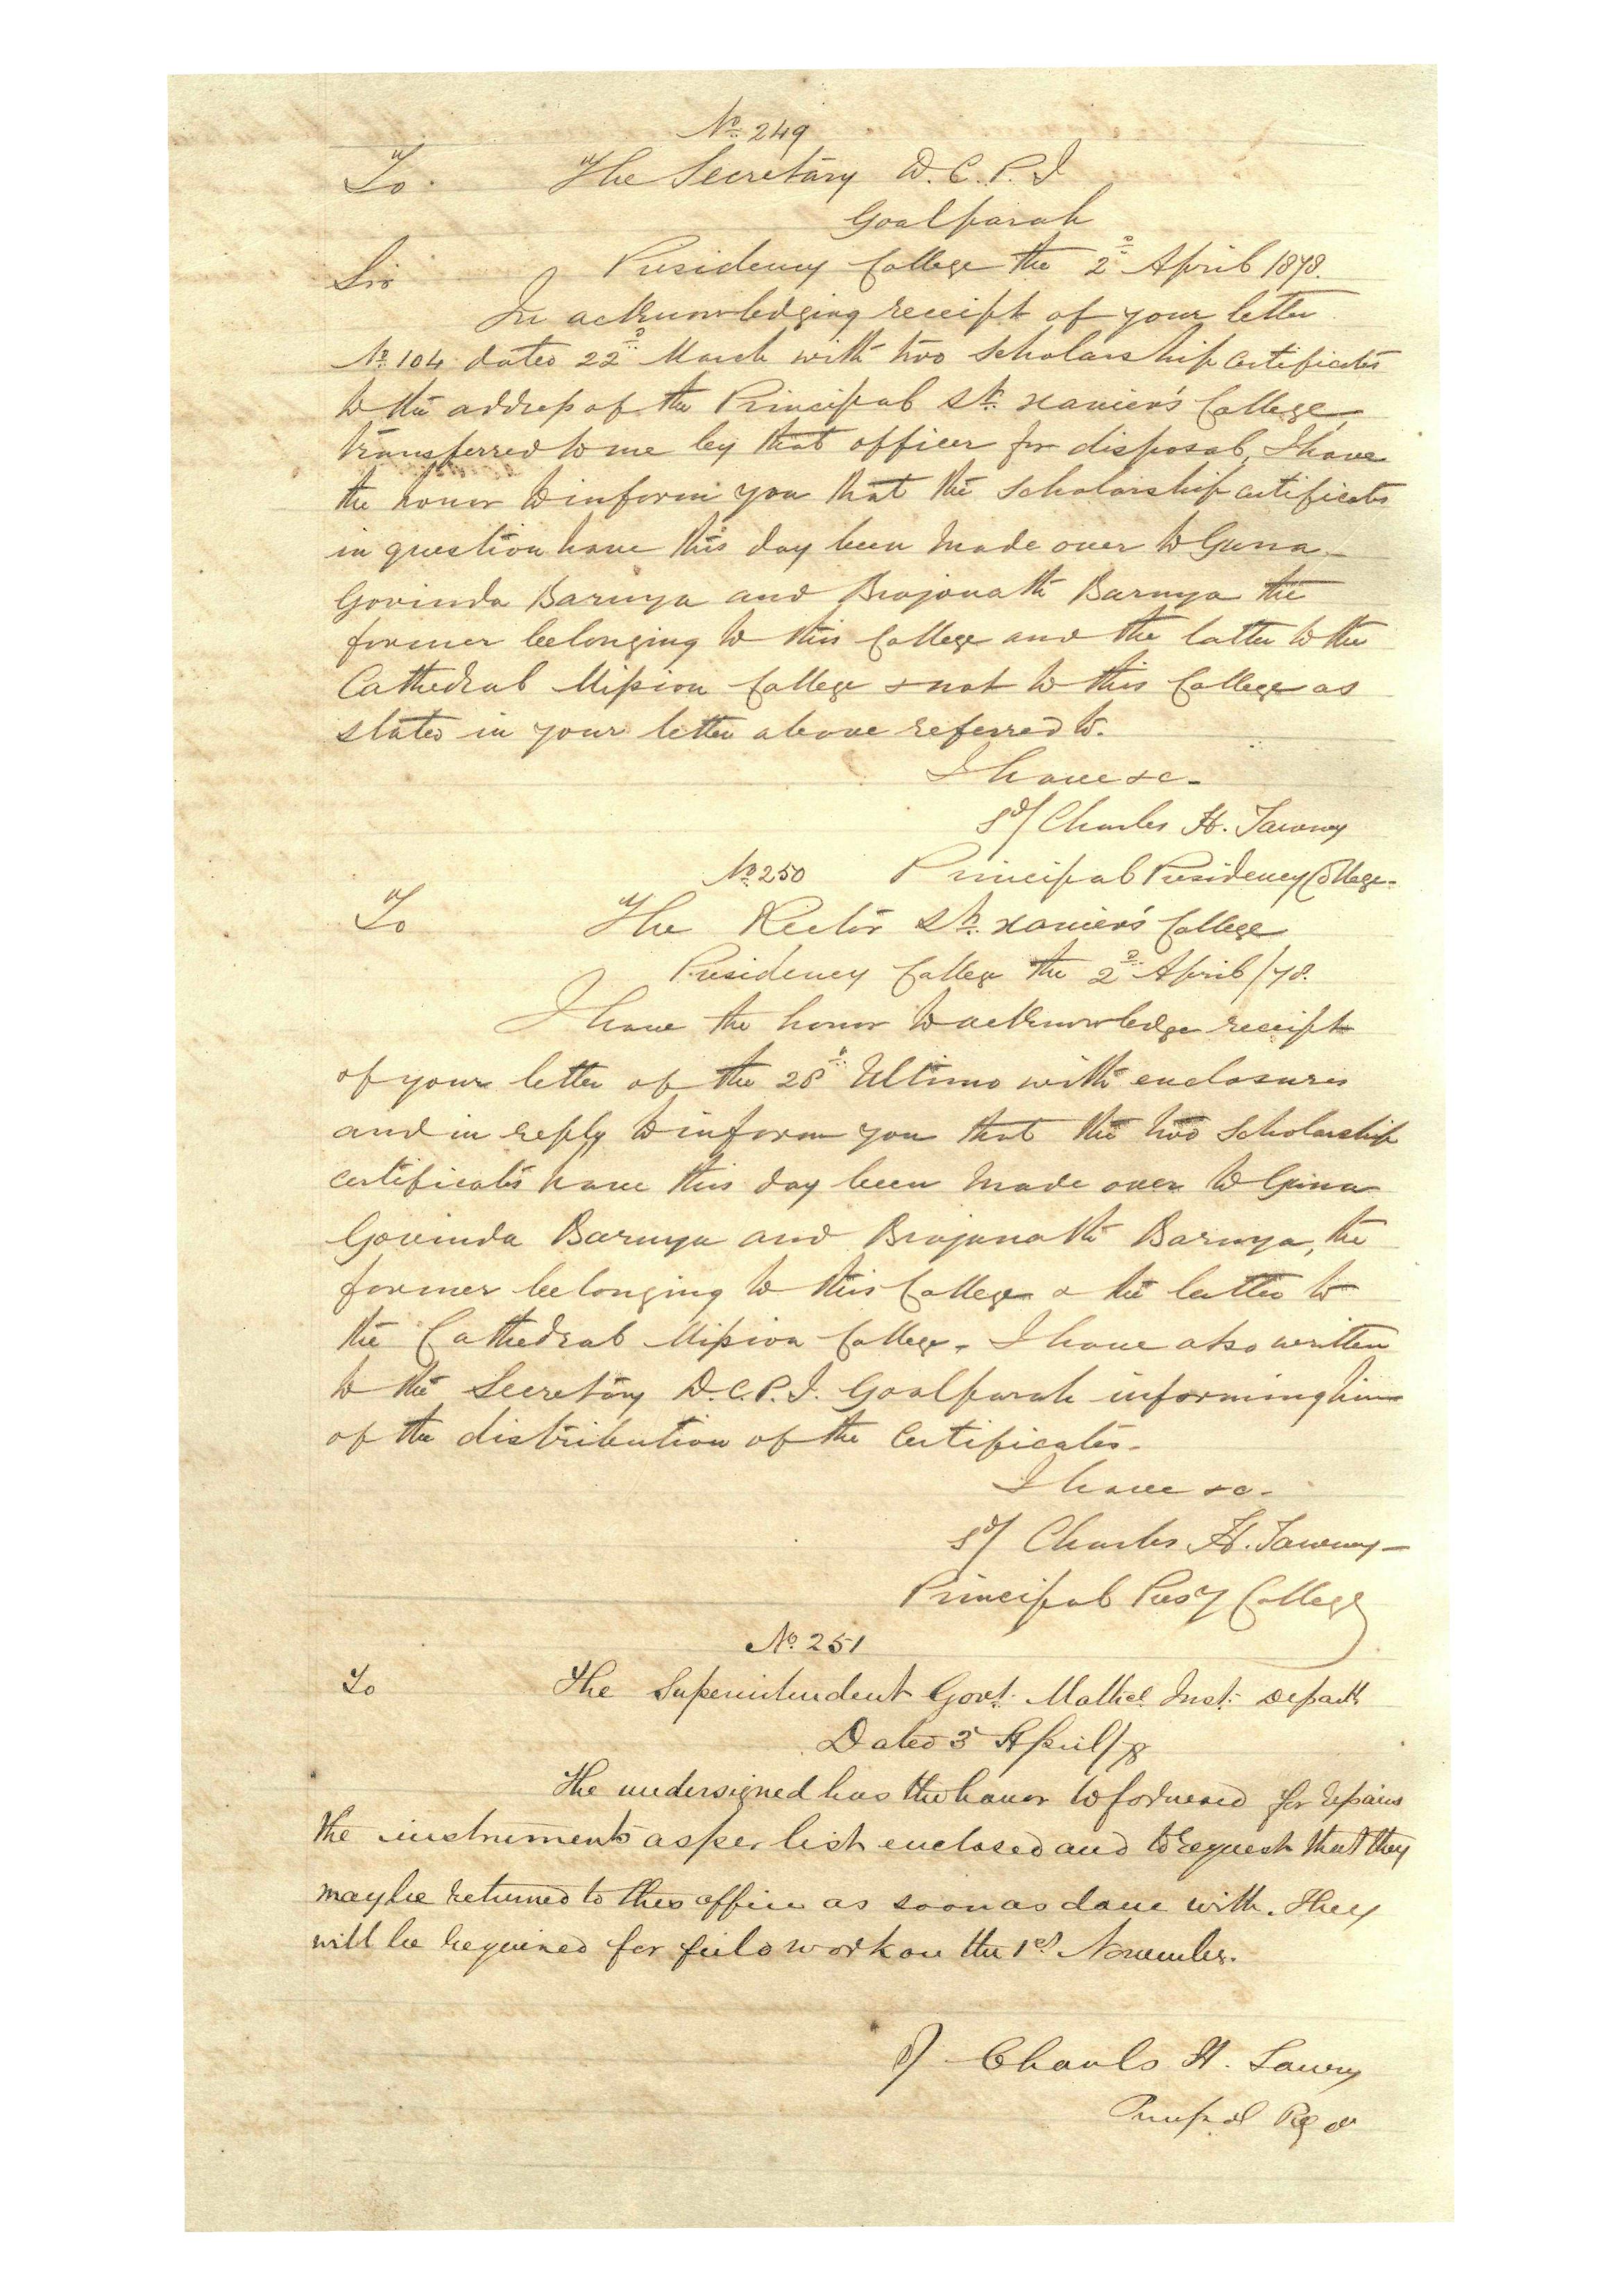 No. 249
To The Secretary D.C.P.I
Goalparah
Presidency College the 2d April 1878.
Sir
In acknowledging receipt of your letter
No. 104 dated 22d March with two Scholarship Certificates
to the address of the Principal St. Xavier's College
transferred to me by that officer for disposal, I have
the honor to inform you that the Scholarship Certificates
in question have this day been made over to Guna
Govinda Baruya and Brojonath Baruya the
former belonging to this College and the latter to the
Cathedral Mission College & not to this College as
stated in your letter above referred to.
I have &c-
Sd/ Charles H. Tawney
Principal Presidency College-
No. 250
To The Rector St. Xavier's College
Presidency College the 2d April /78.
I have the honor to acknowledge receipt
of your letter of the 28th Ultimo with enclosures
and in reply to inform you that the two Scholarship
certificates have this day been made over to Guna
Govinda Baruya and Brojonath Baruya, the
former belonging to this College & the latter to
the Cathedral Mission College. I have also written
to the Secretary D.C.P.I. Goalparah informing him
of the distribution of the Certificates-
I have &c-
Sd/ Charles H. Tawney-
Principal Presy College
No. 251
To The Superintendent Govt. Mathl. Inst. Departt
Dated 3 April/78
The undersigned has the honor to forward for repairs
the instruments as per list enclosed and to request that they
may be returned to this office as soon as done with. They
will be required for field work on the 1st November.
Sd/ Charles H. Tawney